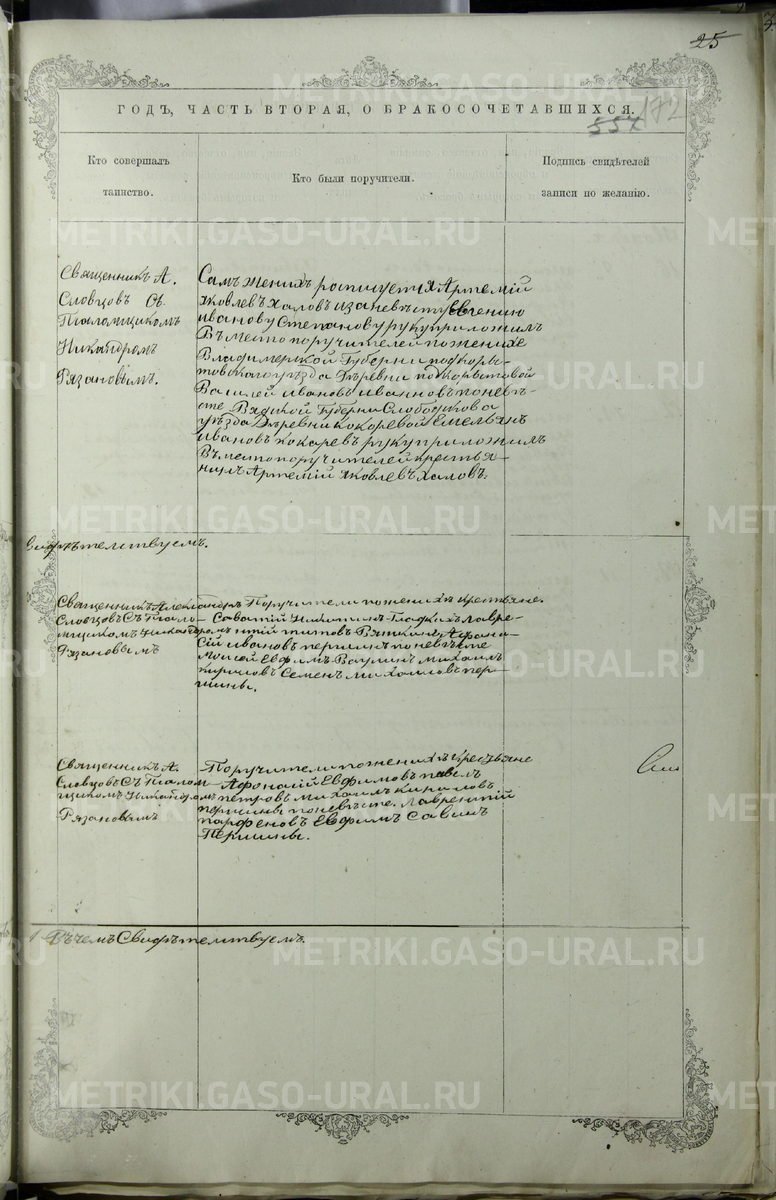 25
ГОДЪ, ЧАСТЬ ВТОРАЯ, О БРАКОСОЧЕТАВШИХСЯ.
557 172
Кто совершалъ таинство.
Кто были поручители.
Подпись свидѣтелей записи по желанію.
Священникъ А.
Словцовъ съ
Псаломщикомъ
Никандромъ
Рязановымъ.
Самъ женихъ росписуетя Артемій
Яковлевъ Халовъ изаневѣсту Евгению
иванову Степанову рукуприложилъ
Въместо поручителей пожениxе
Владимерской Губерни
уѣзда Дѣревни
Василей ивановъ ивановъ поневѣ-
сте Вядкой Губерни Слободскова
уѣзда Дѣревни кокоревой Емельянъ
ивановъ кокаревъ рукуприложилъ
Въместо поручителей крестья-
нинъ Артемій Яковлевъ Халовъ.
Свидѣтелствуемъ.
Священникъ Александръ
Словцовъ Съ Псало-
мщикомъ Никандромъ
Рязановымъ
Поручители поженихѣ крестьяне.
Саватий Никитинъ Гладкихъ Лавре-
нтій титовъ Вяткинъ Афона-
Сій ивановъ першинъ поневѣсте
Моисей Евфимъ Ваулинъ михаилъ
кириловъ Семенъ михаиловъ пер-
шины.
Священникъ А.
Словцовъ Съ Псалом-
щикомъ Никандромъ
Рязановымъ
Поручители поженихѣ кресьяне
Афонасій Евфимовъ павелъ
петровъ михаилъ кириловъ
першины поневѣсте Лаврентій
парфеновъ Евфимъ Савинъ
Першины.
Въчемъ Свидѣтелствуемъ.
METRIKI.GASO-URAL.RU